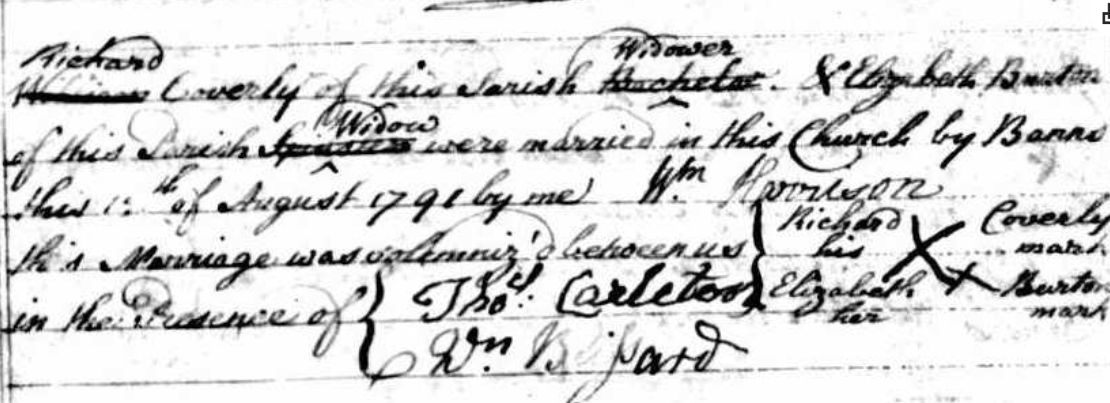 Richard Widower
William Coverly of this Parish Bachelor. & Elizabeth Burton
Widow
of this Parish Spinster were married in this Church by Banns
this th of August 1791 by me Wm Harrison
this Marriage was solemniz'd between us { Richard Coverly
his X mark
in the Presence of { Thos. Carleton Elizabeth X Burton
her mark
Wm